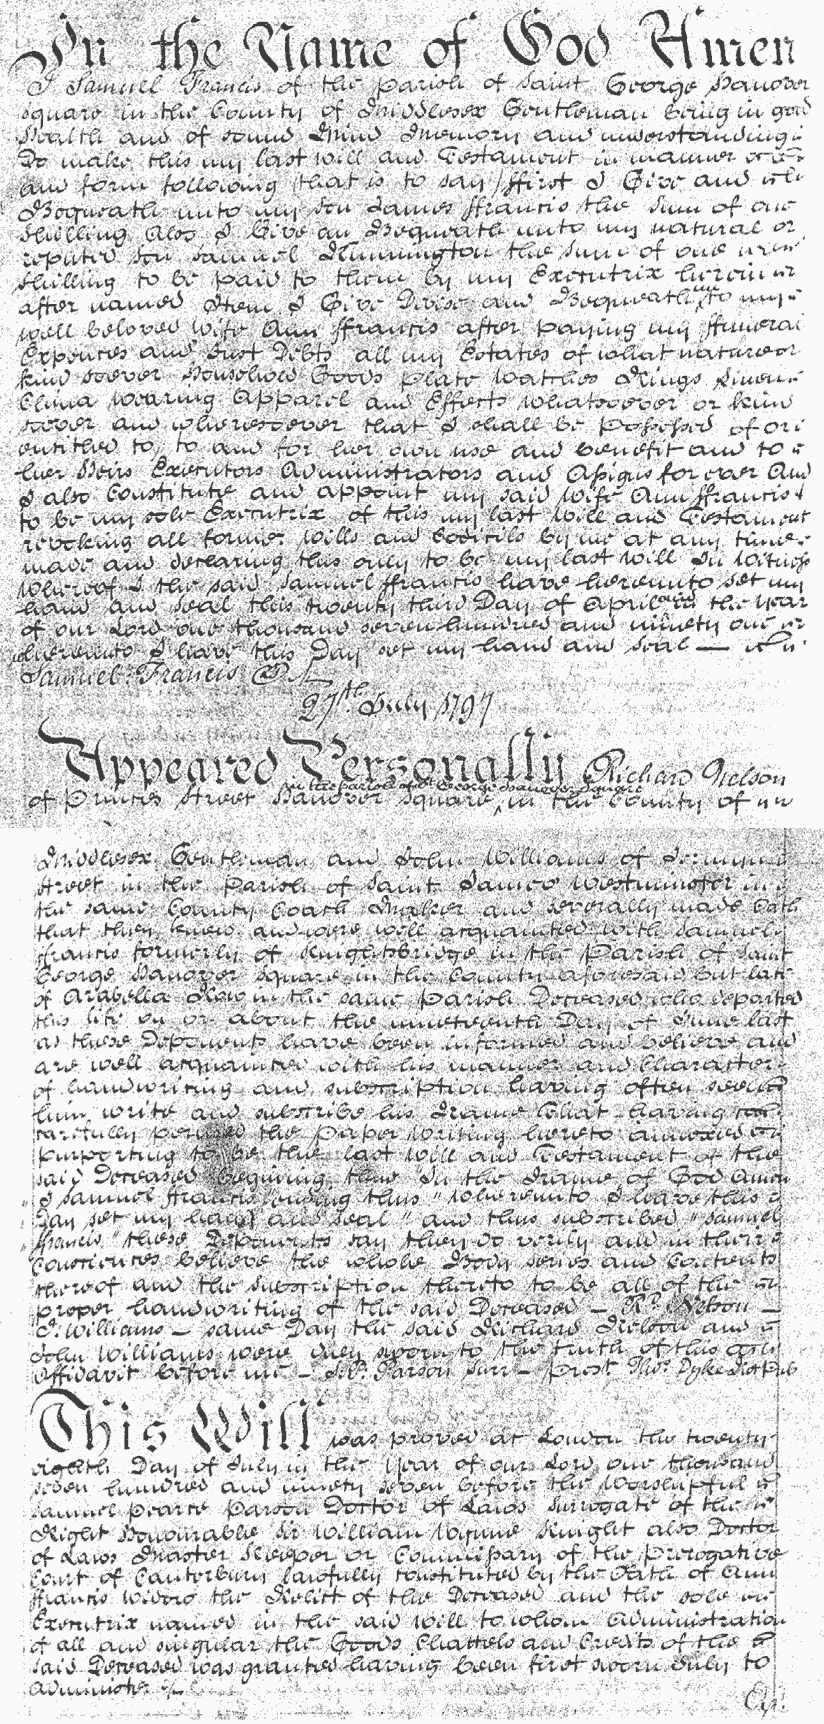 In the Name of God Amen
I Samuel Francis of the parish of Saint George Hanover
square in the County of Middlesex Gentleman being in good
Health and of sound Mind Memory and understanding
Do make this my last Will and Testament in manner
and form following that is to say ffirst I Give and
Bequeath unto my son James ffrancis the sum of one
shilling Also I Give an Bequeath unto my natural or
reputed son Samuel the sum of one
shilling to be paid to them by my Executrix herein
after named Item I Give Devise and Bequeath unto my
well beloved Wife Ann ffrancis after paying my ffuneral
Expences and Just Debts all my Estates of what nature or
kind soever Household Goods Plate Watches Rings Linen
China wearing Apparel and Effects whatsoever or kind
soever and wheresoever that I shall be Possessed of or
entitled to, to and for her own use and benefit and to
her Heirs Executors Administrators and Assigns for ever And
I also Constitute and appoint my said Wife Ann ffrancis
to be my sole Executrix of this my last Will and Testament
revoking all former Wills and Codicils by me at any time
made and declaring this only to be my last Will In Witness
Whereof I the said Samuel ffrancis have hereunto set my
hand and seal this twenty third Day of April and the Year
of our Lord one thousand seven hundred and ninety one
whereunto I have this Day set my hand and seal —
Samuel Francis
27th July 1797
Appeared Personally Richard Nelson
of Princes Street Hanover square in the parish of St George Hanover Square in the County of
Middlesex Gentleman and John Williams of Jermyn
Street in the Parish of Saint James Westminster in
the same County Coach Maker and severally made Oath
that they knew and were well acquainted with Samuel
ffrancis formerly of Knightsbridge in the Parish of Saint
George Hanover square in the County aforesaid but late
of Arabella Row in the same Parish Deceased who departed
this life on or about the nineteenth Day of June last
as these Deponents have been informed and believe and
are well acquainted with his manner and Character
of handwriting and subscription having often seen
him write and subscribe his Name That having
carefully perused the paper Writing hereto annexed
purporting to be the last Will and Testament of the
said Deceased beginning thus In the Name of God Amen
" I Samuel ffrancis ending thus " Whereunto I have this
" Day set my hand and seal " and thus subscribed " Samuel
" ffrancis " these Deponents say they do verily and in their
Consciences believe the whole Body series and Contents
thereof and the subscription thereto to be all of the
proper handwriting of the said Deceased — Rd. Nelson —
J: Williams — same Day the said Richard Nelson and
John Williams were duly sworn to the truth of this
affidavit before me — S. P. Parson Surr — prest Thos. Dyke Not Pub
This Will was proved at London the twenty
eighth Day of July in the Year of our Lord one thousand
seven hundred and ninety seven before the Worshipful
Samuel Pearce Parson Doctor of Laws Surrogate of the
Right Honourable Sir William Wynne Knight also Doctor
of Laws Master Keeper or Commissary of the Prerogative
Court of Canterbury lawfully constituted by the Oath of Ann
ffrancis Widow the Relict of the Deceased and the sole
Executrix named in the said Will to whom Administration
of all and singular the Goods Chattels and Credits of the
said Deceased was granted having been first sworn duly to
Administer